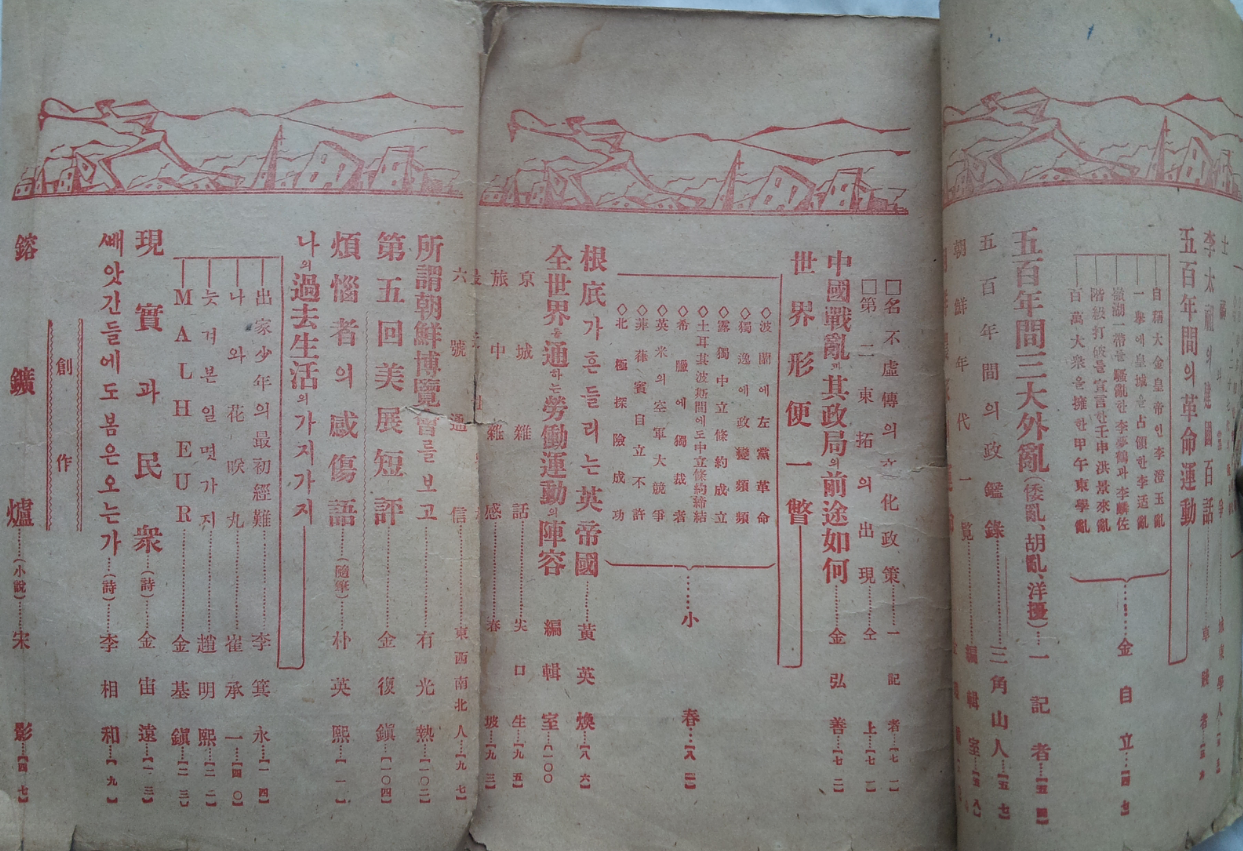 李太祖의建國百話
五百年間의革命運動
自稱大金皇帝인李澄玉亂
一擧에皇城을占領한李适亂
階級打破를宣言한壬申洪景來亂
百萬大衆을擁한甲午東學亂
金自立
五百年間三大外亂(倭亂、胡亂、洋擾)…一記者…【五四】
五百年間의政鑑錄…三角山人…【五七】
朝鮮年代一覽…編輯室
□名不虛傳의文化政策…一記者…【七一】
□第二東拓의出現…仝上…【七一】
中國戰亂과其政局의前途如何…金弘善…【七二】
世界形便一瞥
◇波蘭에左黨革命
◇獨逸에政變頻頻
◇露獨中立條約成立
◇土耳其波斯間에도中立條約締結
◇希臘에獨裁者
◇英米의空軍大競爭
◇菲律賓自立不許
◇北極探險成功
小春…【八二】
根底가흔들리는英帝國…黃英煥…【八六】
全世界를通하는勞働運動의陣容…編輯室…【一〇〇】
京城雜話…尖口生…【九五】
旅中雜感…春坡…【九三】
六號通信…東西南北人…【九七】
所謂朝鮮博覽會를보고…有光熱…【一〇二】
第五回美展短評…金復鎭…【一〇四】
煩惱者의感傷語…(隨筆)…朴英熙
나의過去生活의가지가지
出家少年의最初經難…李箕永…【一四】
나와花呎丸…崔承一…【四〇】
늣겨본일몃가지…趙明熙…【二二】
MALHEUR…金基鎭…【二三】
現實과民衆…(詩)…金宙遠…【一三】
ᄲᅢ앗간들에도봄은오는가…(詩)…李相和…【九】
創作
鎔鑛爐…(小說)…宋影…【四七】